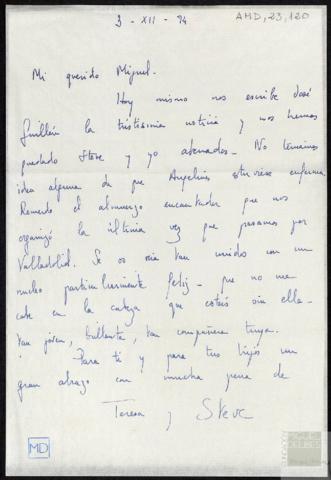 3 - XII - 74 AMD, 23, 120
Mi querido Miguel.
Hoy mismo nos escribe José
Guillén la tristísima noticia y nos hemos
quedado Steve y yo aterrados - No teníamos
idea alguna de que Angelines estuviese enferma
Recuerdo el almuerzo encantador que nos
organizó la última vez que pasamos por
Valladolid. Se os veía tan unidos con un
mucho particularmente feliz - que no me
cabe en la cabeza que estés sin ella -
tan joven, bullente, tan compañera tuya.
Para ti y para tus hijos un
gran abrazo con mucha pena de
Teresa y Steve
MD